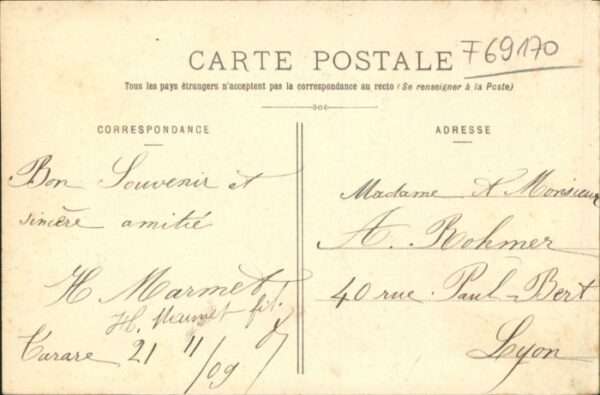 CARTE POSTALE
F69170
Tous les pays étrangers n'acceptent pas la correspondance au recto (Se renseigner à la Poste)
CORRESPONDANCE
Bon Souvenir et
sincère amitié
H Marmet
H. Marmet
Tarare 21 11/09
ADRESSE
Madame & Monsieur
A. Rohmer
40 rue Paul-Bert
Lyon